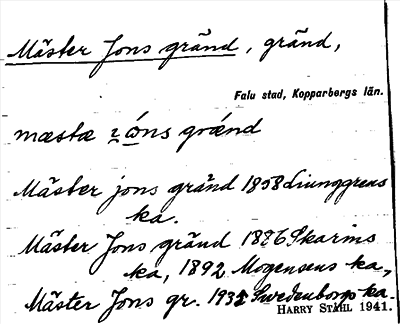 Mäster Jons gränd, gränd,
Falu stad, Kopparbergs län.
mæstæ jóns grænd
Mäster jons gränd 1858 Liunggrens
ka.
Mäster Jons gränd 1886 Skarins
ka, 1892 Mogensens ka,
Mäster Jons gr. 1932 Swedenborgs ka.
HARRY STÅHL 1941.